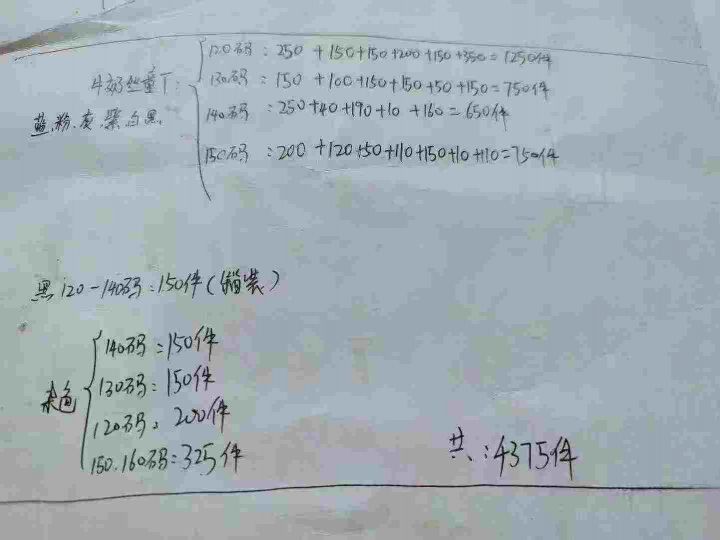 120码:250+150+150+200+150+350=1250件
牛奶丝童T:
130码:150+100+150+150+50+150=750件
蓝.粉.灰.紫.白.黑.
140码:250+40+190+10+160=650件
150码:200+120+50+110+150+10+110=750件
黑120-140码:150件(箱装)
140码:150件
杂色
130码:150件
120码:200件
150.160码:325件
共:4375件